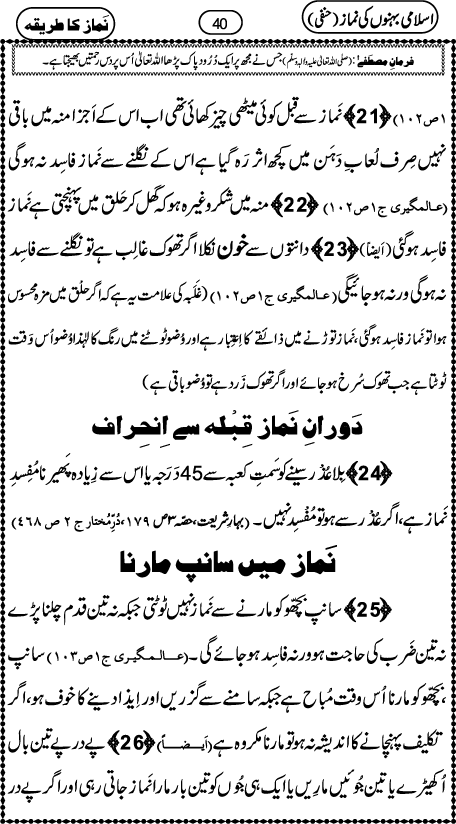 اسلامی بہنوں کی نماز (حنفی)
40
نَماز کا طریقہ
فرمانِ مصطفےٰ: (صلی اللہ تعالیٰ علیہ واٰلہٖ وسلم) جس نے مجھ پر ایک دُرُود پاک پڑھا اللہ تعالیٰ اُس پر دس رحمتیں بھیجتا ہے۔
۱ ص۱۰۲) ﴿21﴾ نَماز سے قبل کوئی میٹھی چیز کھائی تھی اب اس کے اَجزا منہ میں باقی
نہیں صِرف لُعابِ دَہَن میں کچھ اثر رہ گیا ہے اس کے نگلنے سے نَماز فاسِد نہ ہوگی
(عالمگیری ج۱ ص۱۰۲) ﴿22﴾ منہ میں شکر وغیرہ ہو کہ گھل کر حَلق میں پہنچتی ہے نَماز
فاسِد ہوگئی (اَیضاً) ﴿23﴾ دانتوں سے خون نکلا اگر تھوک غالِب ہے تو نگلنے سے فاسِد
نہ ہوگی ورنہ ہو جائیگی (عالمگیری ج۱ ص۱۰۲) (غَلَبہ کی علامت یہ ہے کہ اگر حَلْق میں مزہ محسوس
ہوا تو نَماز فاسِد ہوگئی، نَماز توڑنے میں ذائقے کا اِعتِبار ہے اور وُضو ٹوٹنے میں رنگ کا لہٰذا وُضو اُس وَقت
ٹوٹتا ہے جب تھوک سُرخ ہو جائے اور اگر تھوک زَرد ہے تو وُضو باقی ہے)
دَورانِ نَماز قِبْلہ سے اِنحِراف
﴿24﴾ بِلا عُذر سینے کو سَمتِ کعبہ سے 45 دَرَجہ یا اس سے زِیادہ پَھیرنا مُفسِدِ
نَماز ہے، اگر عُذر سے ہو تو مُفْسِد نہیں۔ (بہارِ شریعت، حصّہ ۳ ص ۱۷۹، دُرِّمُختار ج ۲ ص ۴۶۸)
نَماز میں سانپ مارنا
﴿25﴾ سانپ بچھّو کو مارنے سے نَماز نہیں ٹوٹتی جبکہ نہ تین قدم چلنا پڑے
نہ تین ضَرب کی حاجت ہو ورنہ فاسِد ہو جائے گی۔ (عالمگیری ج۱ ص۱۰۳) سانپ
،بچھّو کو مارنا اُس وقت مُباح ہے جبکہ سامنے سے گزریں اور اِیذا دینے کا خوف ہو، اگر
تکلیف پہنچانے کا اندیشہ نہ ہو تو مارنا مکروہ ہے (اَیضاً) ﴿26﴾ پے درپے تین بال
اُکھیڑے یا تین جُوئیں ماریں یا ایک ہی جُوں کو تین بار مارا نَماز جاتی رہی اور اگر پے در